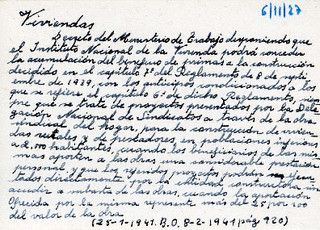 6/11/27
Viviendas
Decreto del Ministerio de Trabajo disponiendo que
el Instituto Nacional de la Vivienda podrá conceder
la acumulación del beneficio de primas a la construcción
decidido en el capítulo 7º del Reglamento de 8 de septi
embre de 1939, con los anticipos condicionados a los
que se refiere el capítulo 6º de dicho Reglamento, siem
pre que se trate de proyectos presentados por la Dele
gación Nacional de Sindicatos a través de la obra
sindical del hogar, para la construcción de vivien
das rurales y de pescadores, en poblaciones inferiores
a 2,000 habitantes, cuando los beneficiarios de las mis
mas aporten a las obras una considerable prestación
personal y que los referidos proyectos podrán ejecu
tados directamente por la entidad constructora sin
acudir a subasta de las obras, cuando la aportación
ofrecida por la misma represente más del 25 por 100
del valor de la obra.
(25-1-1941. B.O. 8-2-1941 pág 920)